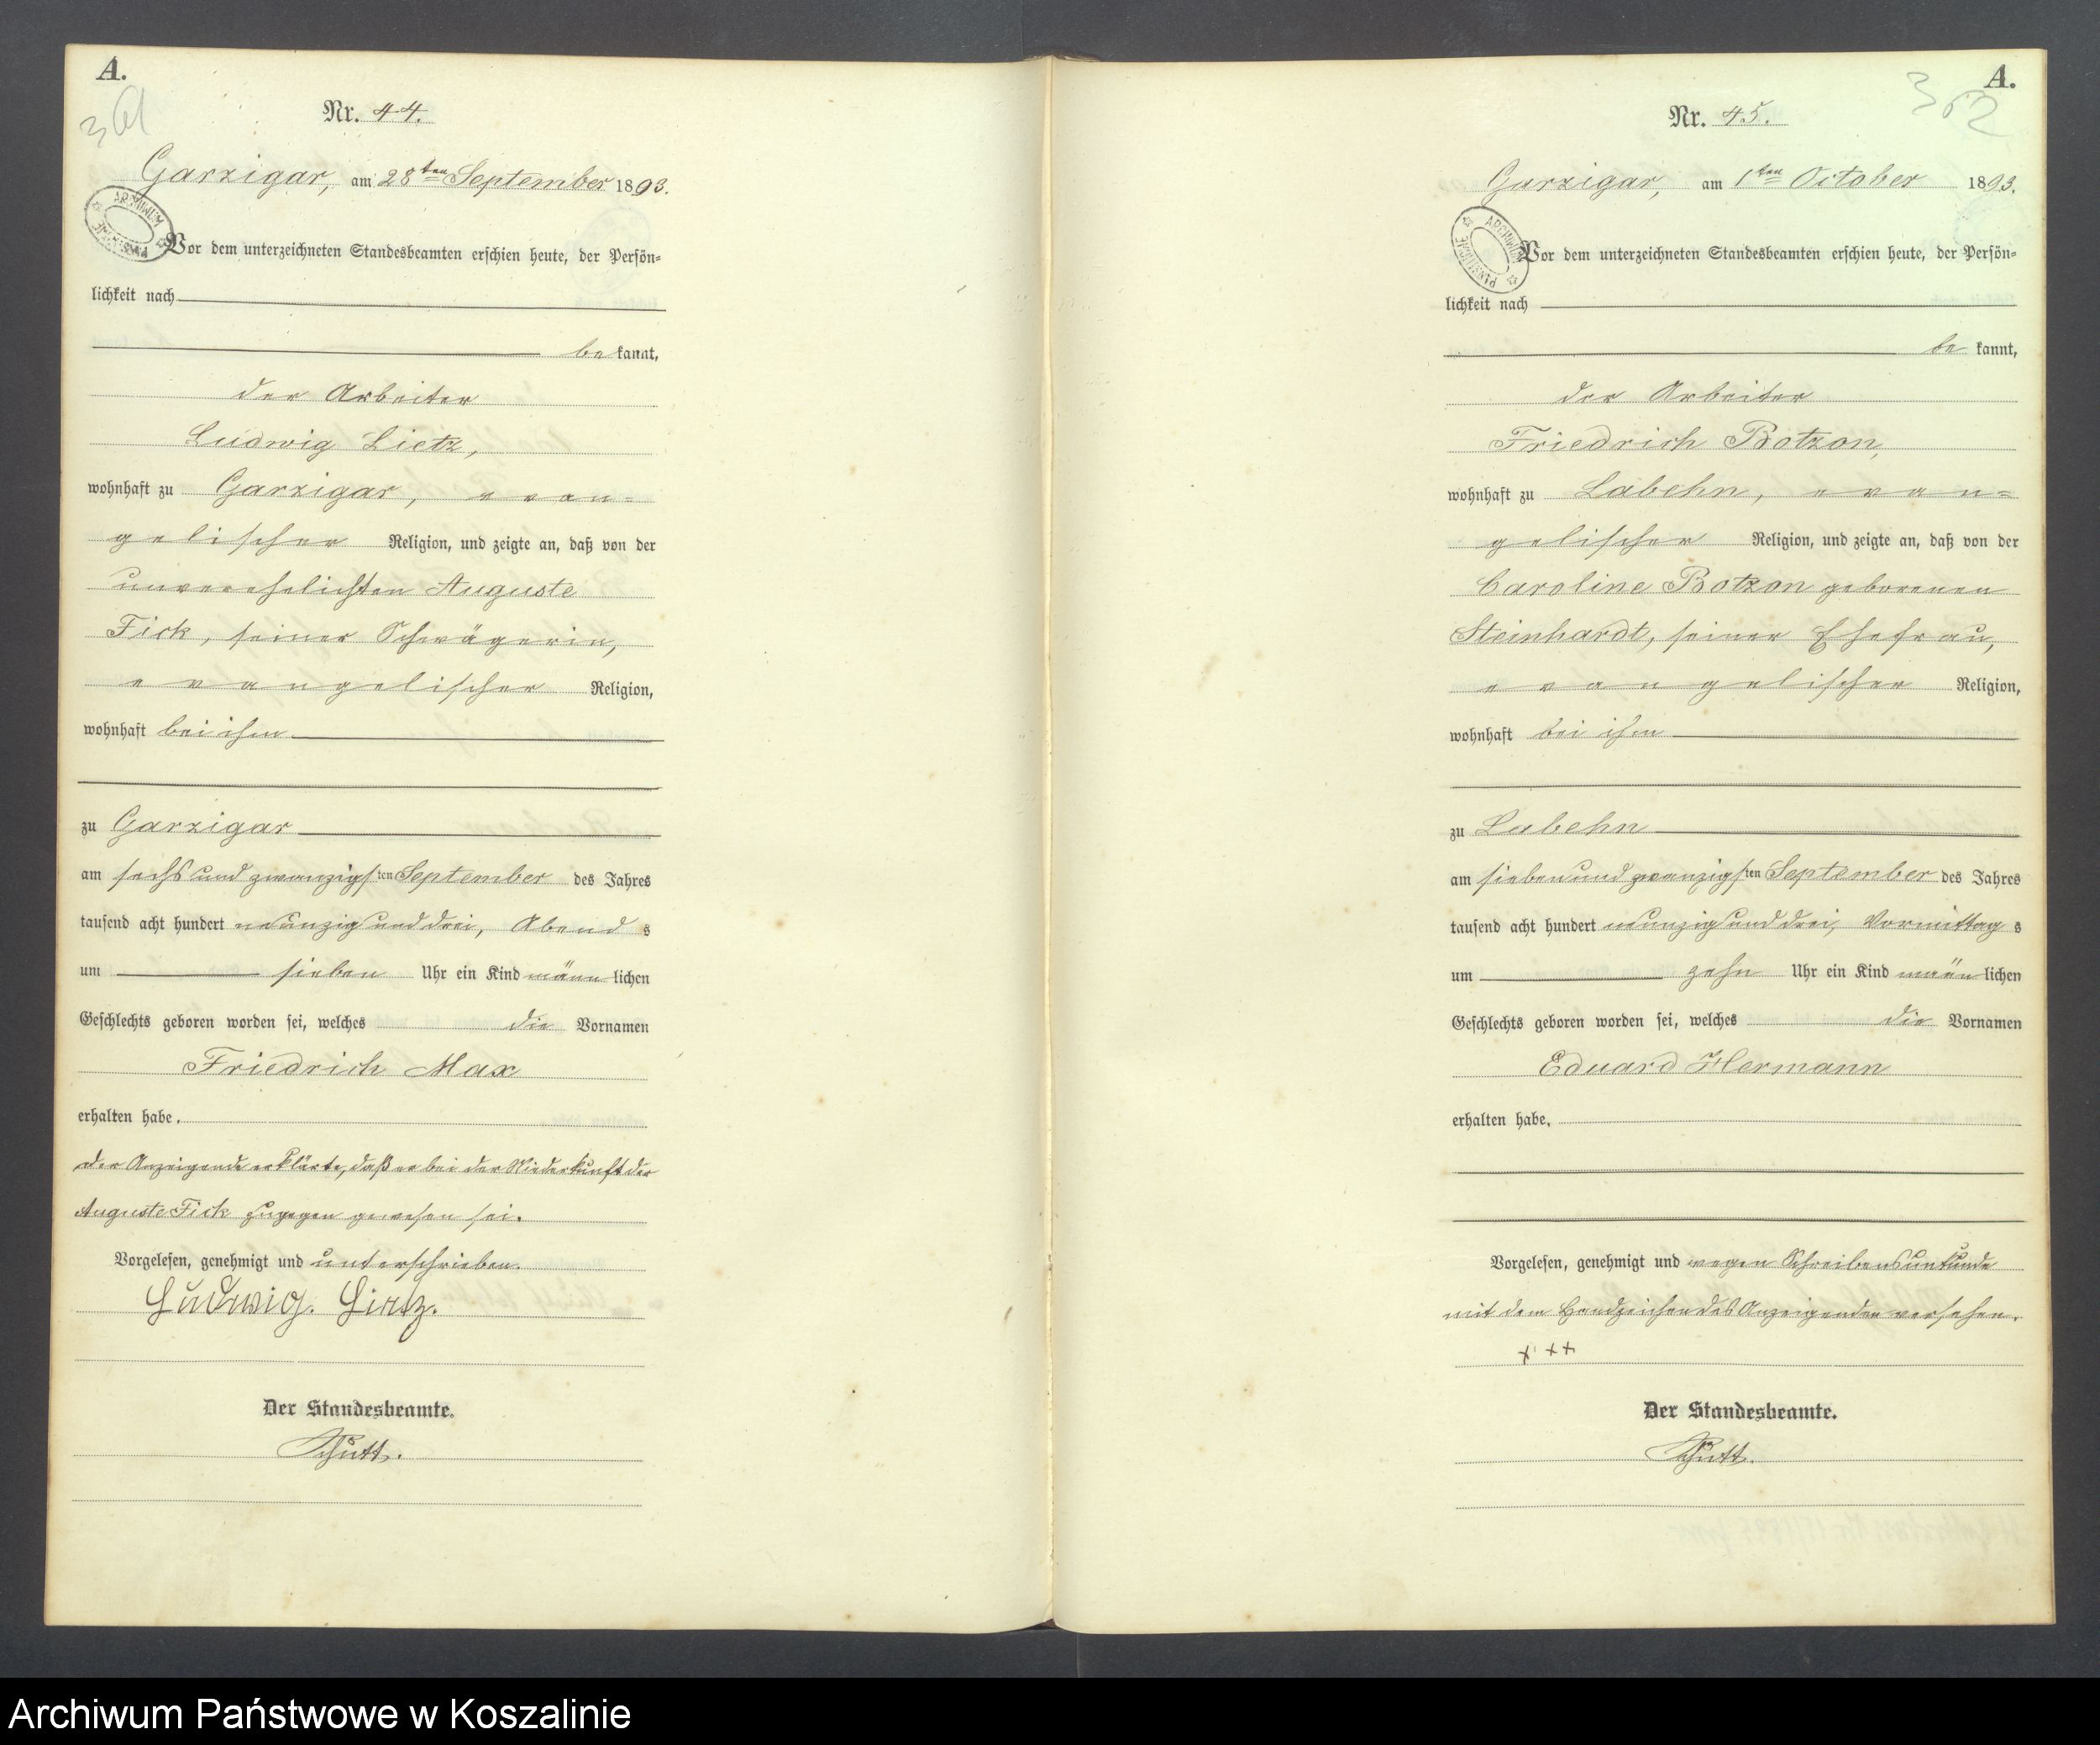 A.
361
Nr. 44.
Garzigar, am 28ten September 1893.
ARCHIWUM
Vor dem unterzeichneten Standesbeamten erschien heute, der Persön-
lichkeit nach
bekannt,
der Arbeiter
Ludwig Lietz,
wohnhaft zu Garzigar, evan-
gelischer Religion, und zeigte an, daß von der
unverehelichten Auguste
Fick, seiner Schwägerin,
evangelischer Religion,
wohnhaft bei ihm
zu Garzigar
am sechs und zwanzigsten September des Jahres
tausend acht hundert neunzig und drei, Abends
um sieben Uhr ein Kind männlichen
Geschlechts geboren worden sei, welches die Vornamen
Friedrich Max
erhalten habe.
Der Anzeigende erklärte, daß er bei der Niederkunft der
Auguste Fick zugegen gewesen sei.
Vorgelesen, genehmigt und unterschrieben.
Ludwig. Lietz.
Der Standesbeamte.
Schütt.
A.
362
Nr. 45.
Garzigar, am 1ten October 1893.
ARCHIWUM PAŃSTWOWE
Vor dem unterzeichneten Standesbeamten erschien heute, der Persön-
lichkeit nach
bekannt,
der Arbeiter
Friedrich Botzon,
wohnhaft zu Labehn, evan-
gelischer Religion, und zeigte an, daß von der
Caroline Botzon geborenen
Steinhardt, seiner Ehefrau,
evangelischer Religion,
wohnhaft bei ihm
zu Labehn
am sieben und zwanzigsten September des Jahres
tausend acht hundert neunzig und drei, Vormittags
um zehn Uhr ein Kind männlichen
Geschlechts geboren worden sei, welches die Vornamen
Eduard Hermann
erhalten habe.
Vorgelesen, genehmigt und wegen Schreibensunkunde
mit dem Handzeichen des Anzeigenden versehen.
+++
Der Standesbeamte.
Schütt.
Archiwum Państwowe w Koszalinie